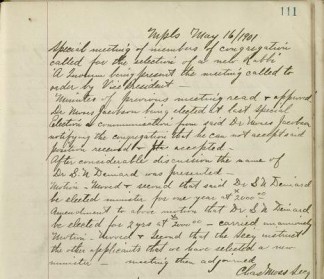 111
Mpls May 16/1901
Special meeting of members of congregation
called for the selection of a new Rabbi
A Quorum being present the meeting called to
order by Vice President —
Minutes of previous meeting read & approved
Dr Moses Jacobson being elected at last special
election a communication from said Dr Moses Jacobson
notifying the congregation that he can not accept said
position received & accepted —
After considerable discussion the name of
Dr S. N. Deinard was presented —
Motion — Moved & second that said Dr S N Deinard
be elected minister for one year at 2000
Amendment to above motion that Dr S. N Deinard
be elected for 2 yrs at 2000 — carried unanimously
Motion — Moved & Second that the Secy instruct
the other applicants that we have selected a new
minister — meeting then adjourned
Chas Moss Secy